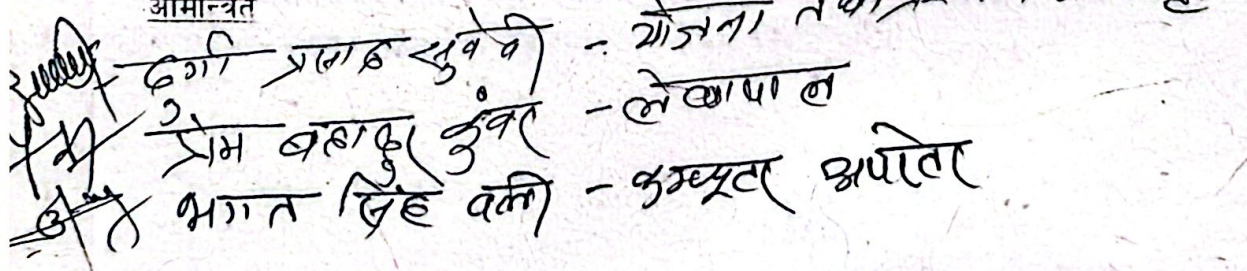 आमन्त्रित
दुर्गा प्रसाद सुवेदी - योजना
प्रेम बहादुर कुंवर - लेखापाल
भगत सिंह वली - कम्प्यूटर अपरेटर